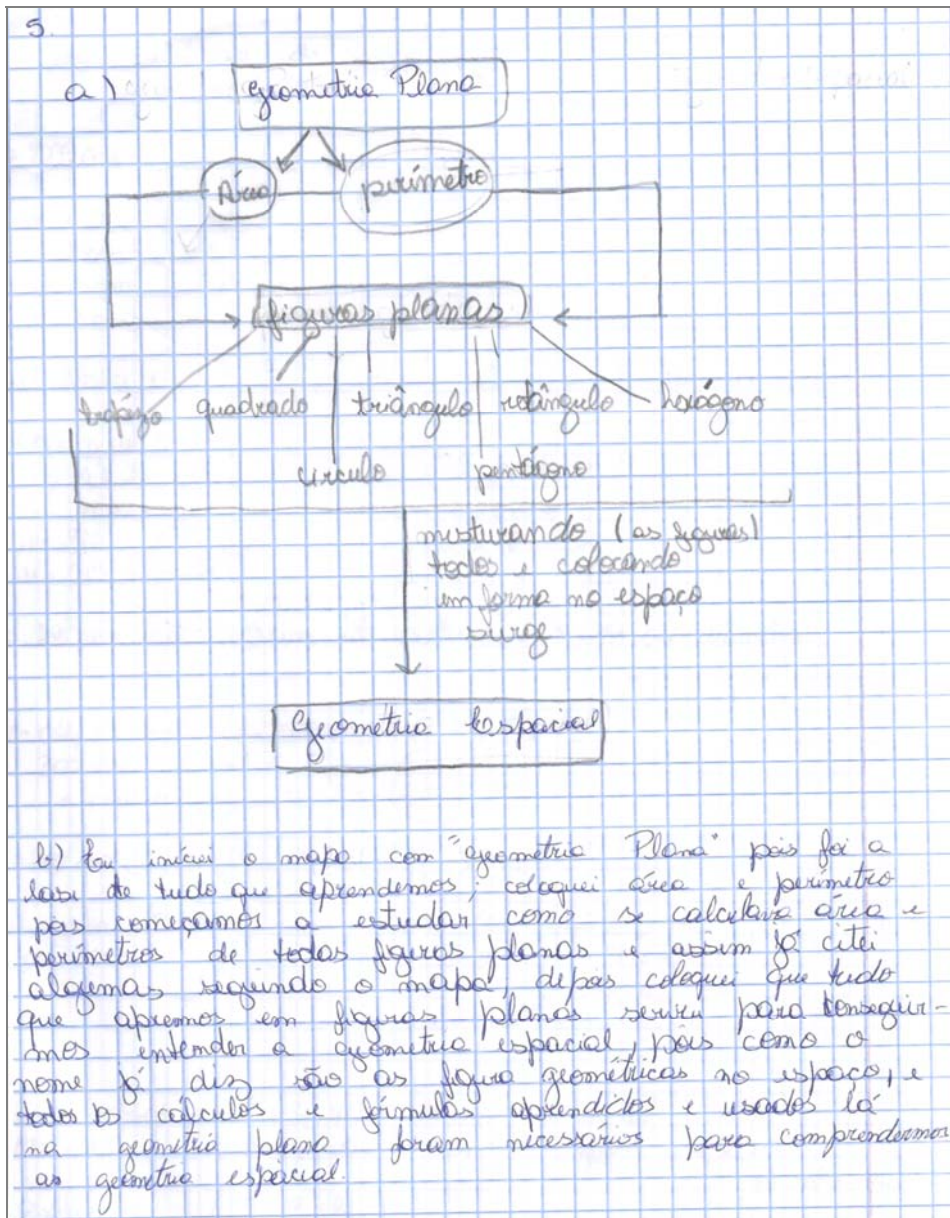 5.
a)
Geometria Plana
Área
perímetro
figuras planas
trapézo quadrado triângulo retângulo hexágono
círculo pentágono
misturando (as figuras)
todos e colocando
em forma no espaço
surge
Geometria Espacial
b) Eu iniciei o mapa com "geometria Plana" pois foi a
base de tudo que aprendemos, coloquei área e perímetro
pois começamos a estudar como se calculava área e
perímetros de todas figuras planas e assim já citei
algumas seguindo o mapa, depois coloquei que tudo
que apremos em figuras planas serviu para conseguir-
mos entender a geometria espacial, pois como o
nome já diz são as figura geométricas no espaço, e
todos os cálculos e fórmulas aprendidos e usados lá
na geometria plana foram necessários para comprendermos
as geometria espacial.